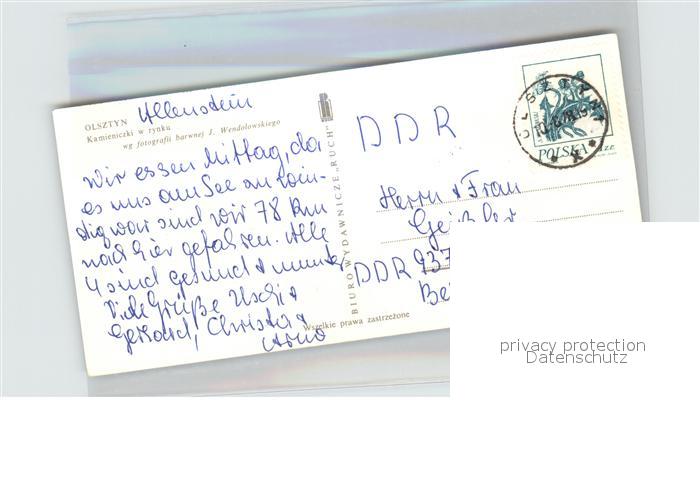 Allenstein
OLSZTYN
Kamieniczki w rynku
wg fotografii barwnej J. Wendołowskiego
Wir essen Mittag, da
es uns am See zu win-
dig war sind wir 78 km
nach hier gefahren. Alle
4 sind gesund & munter
Viele Grüße Uschi &
Gerhard, Christa &
Arno
BIURO WYDAWNICZE „RUCH"
Wszelkie prawa zastrzeżone
DDR
Herrn & Frau
DDR 937
Be
OLSZTYN
POLSKA
privacy protection
Datenschutz